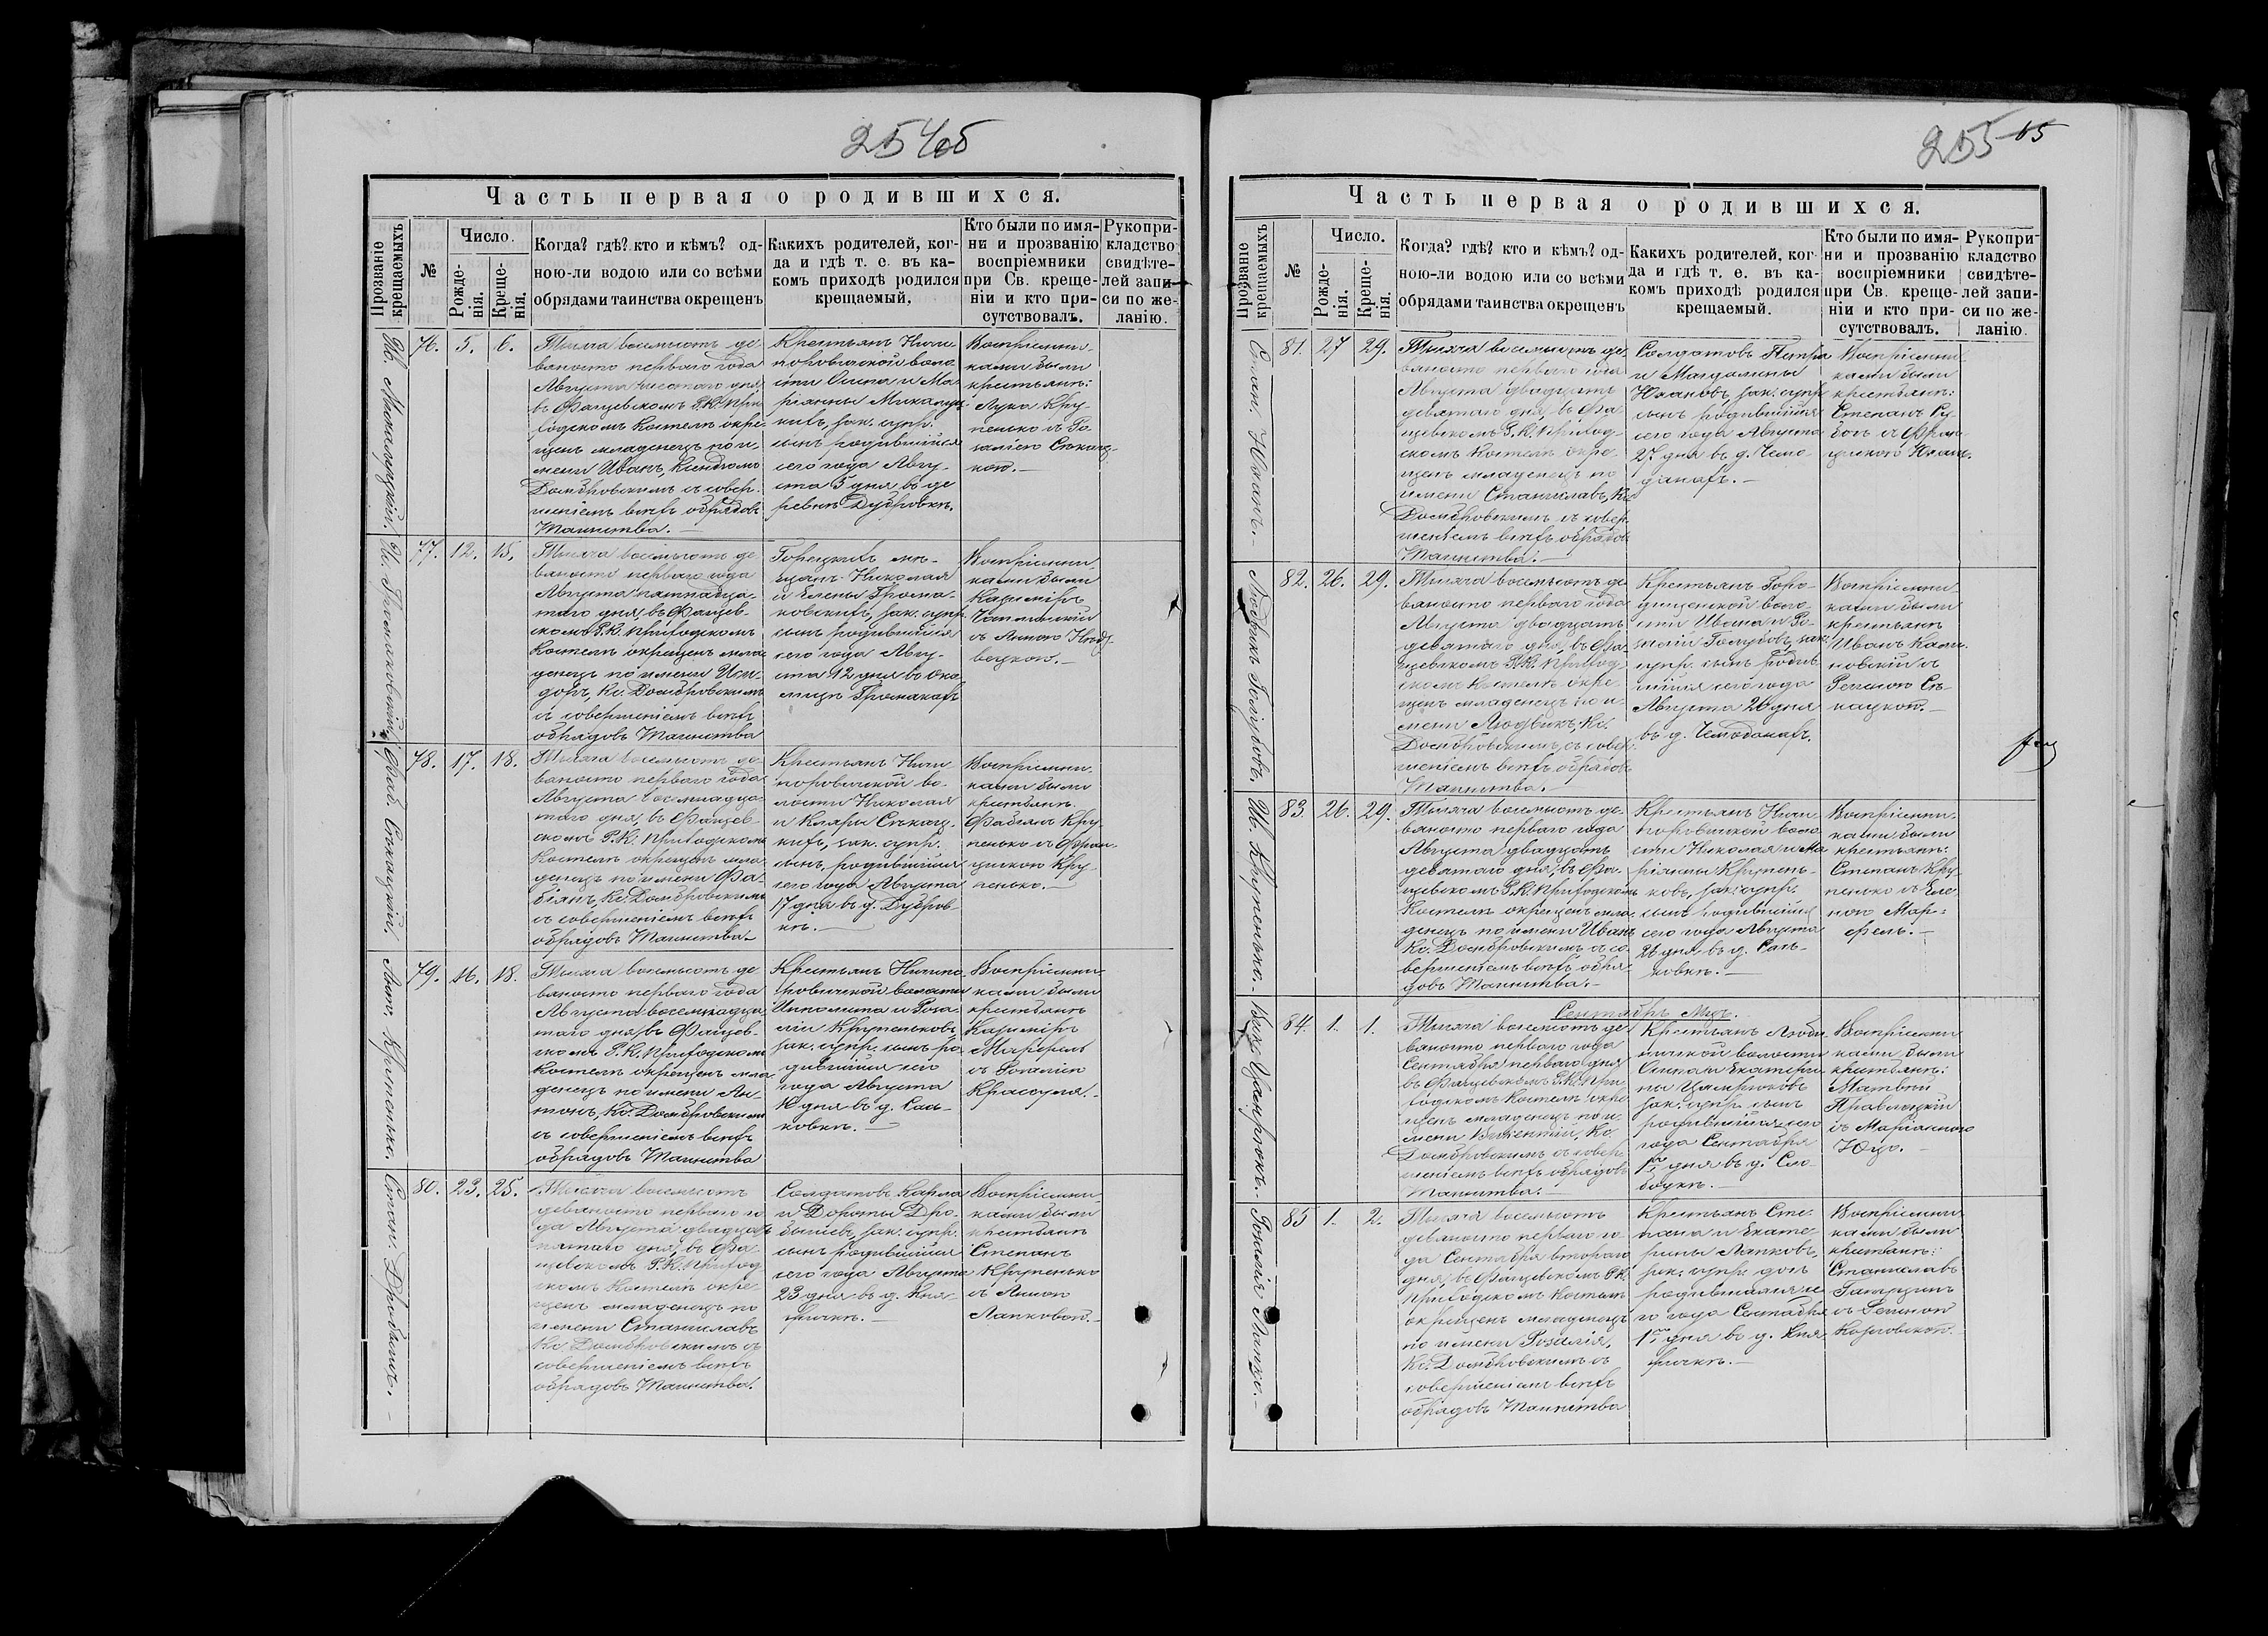 254об
Часть первая о родившихся.
Прозваніе крещаемыхъ
№
Число.
Рожде-
нія.
Креще-
нія.
Когда? гдѣ? кто и кѣмъ? од-
ною-ли водою или со всѣми
обрядами таинства окрещенъ
Какихъ родителей, ког-
да и гдѣ т. е. въ ка-
комъ приходѣ родился
крещаемый.
Кто были по имя-
ни и прозванію
воспріемники
при Св. креще-
ніи и кто при-
сутствовалъ.
Рукопри-
кладство
свидѣте-
лей запи-
си по же-
ланію.
76. 5. 6.
Тысяча восемьсотъ де-
вяносто перваго года
Августа шестого дня,
въ Фащевскомъ Р.К. При-
ходскомъ Костелѣ окре-
щенъ младенецъ по и-
мени Иванъ, Ксендзомъ
Домбровскимъ съ совер-
шеніемъ всѣхъ обрядовъ
Таинства.
Крестьянъ Ничи-
поровичской воло-
сти Осипа и Ма-
ріанны
зак. супр.
сынъ родившійся
сего года Авгу-
ста 5 дня въ де
ревнѣ Дубровкѣ.
Воспріемни-
ками были
крестьяне:
Лука Кру-
пенько съ Ро-
заліею
77. 12. 15.
Тысяча восемьсотъ де-
вяносто перваго года
Августа пятнадца-
таго дня, въ Фащев-
скомъ Р.К. Приходскомъ
Костелѣ окрещенъ мла-
денецъ по имени Иси-
доръ, Кс. Домбровскимъ
съ совершеніемъ всѣхъ
обрядовъ Таинства
Горецкихъ мѣ-
щанъ Николая
и Елены Грома-
ковскихъ, зак. супр.
сынъ родившійся
сего года Авгу-
ста 12 дня въ око
лицѣ Громакахъ
Воспріемни-
ками были
Казиміръ
съ Анною
78. 17. 18.
Фаб. Спекацкій.
Тысяча восемьсотъ де-
вяносто перваго года
Августа восемнадца-
таго дня, въ Фащев-
скомъ Р.К. Приходскомъ
Костелѣ окрещенъ мла-
денецъ по имени Фа-
біянъ, Кс. Домбровскимъ
съ совершеніемъ всѣхъ
обрядовъ Таинства
Крестьянъ Ничи-
поровичской во-
лости Николая
и Клары
зак. супр.
сынъ, родившійся
сего года Августа
17 дня въ д. Дубров-
кѣ.
Воспріемни-
ками были
крестьяне
Фабіянъ Кру-
пенько съ Фран-
цишкою Кру-
пенько.
79. 16. 18.
Антонъ Крупенько.
Тысяча восемьсотъ де
вяносто перваго года
Августа восемнадца-
таго дня, въ Фащев-
скомъ Р.К. Приходскомъ
Костелѣ окрещенъ мла-
денецъ по имени Ан-
тонъ, Кс. Домбровскимъ
съ совершеніемъ всѣхъ
обрядовъ Таинства
Крестьянъ Ничипо-
ровичской волости
Ипполита и Роза-
ліи Крупеньковъ
зак. супр. сынъ ро-
дившійся сего
года Августа
16 дня въ д. Сась-
ковкѣ.
Воспріемни-
ками были
крестьяне
Казиміръ
Марфель
съ Розаліею
80. 23. 25.
Тысяча восемьсотъ
девяносто перваго го
да Августа двадцать
пятаго дня, въ Фа-
щевскомъ Р.К. Приход
скомъ Костелѣ окре-
щенъ младенецъ по
имени Станиславъ
Кс. Домбровскимъ съ
совершеніемъ всѣхъ
обрядовъ Таинства.
Солдатовъ Карла
и Дороты
зак. супр.
сынъ родившійся
сего года Августа
23 дня въ д. Кня-
жичкѣ.
Воспріемни-
ками были
крестьяне
Степанъ
Крупенько
съ Анною
Лапковой.
255
Часть первая о родившихся.
Прозваніе крещаемыхъ
№
Число.
Рожде-
нія.
Креще-
нія.
Когда? гдѣ? кто и кѣмъ? од-
ною-ли водою или со всѣми
обрядами таинства окрещенъ
Какихъ родителей, ког-
да и гдѣ т. е. въ ка-
комъ приходѣ родился
крещаемый.
Кто были по имя-
ни и прозванію
воспріемники
при Св. креще-
ніи и кто при-
сутствовалъ.
Рукопри-
кладство
свидѣте-
лей запи-
си по же-
ланію.
81. 27 29.
Тысяча восемьсотъ де-
вяносто перваго года
Августа двадцать
девятаго дня, въ Фа-
щевскомъ Р.К. Приход-
скомъ Костелѣ окре-
щенъ младенецъ по
имени Станиславъ, Кс.
Домбровскимъ съ совер-
шеніемъ всѣхъ обрядовъ
Таинства.
Солдатовъ Петра
и Магдалины
зак. супр.
сынъ родившійся
сего года Августа
27 дня въ д.
Воспріемни-
ками были
крестьяне:
Степанъ
съ Фран-
цишкою
82. 26. 29.
Людвикъ Голубовъ.
Тысяча восемьсотъ де-
вяносто перваго года
Августа двадцать
девятаго дня, въ Фа-
щевскомъ Р.К. Приход-
скомъ Костелѣ окре-
щенъ младенецъ по и-
мени Людвикъ, Кс.
Домбровскимъ, съ совер-
шеніемъ всѣхъ обрядовъ
Таинства.
Крестьянъ Горо-
дищенской воло-
сти Ивана и Ро-
заліи Голубовъ, зак.
супр. сынъ родив-
шійся сего года
Августа 26 дня
въ д. Чемоданахъ.
Воспріемни-
ками были
крестьяне
Иванъ
съ
83. 26. 29.
Ив. Крупенько.
Тысяча восемьсотъ де-
вяносто перваго года
Августа двадцать
девятаго дня, въ Фа-
щевскомъ Р.К. Приходскомъ
Костелѣ окрещенъ мла-
денецъ по имени Иванъ
Кс. Домбровскимъ съ со-
вершеніемъ всѣхъ обря-
довъ Таинства.
Крестьянъ Ничи-
поровичской воло-
сти Николая и Ма-
ріанны Крупень-
ковъ, зак. супр.
сынъ родившійся
сего года Августа
26 дня въ д. Сась-
ковкѣ.
Воспріемни-
ками были
крестьяне:
Степанъ Кру-
пенько съ Еле-
ною Мар-
фель.
Сентябрь Мцъ.
84. 1. 1.
Тысяча восемьсотъ де-
вяносто перваго года
Сентября перваго дня
въ Фащевскомъ Р.К. При-
ходскомъ Костелѣ окре-
щенъ младенецъ по и-
мени Викентій, Кс.
Домбровскимъ съ совер-
шеніемъ всѣхъ обрядовъ
Таинства.
Крестьянъ
волости
Осипа и Екатери-
ны
зак. супр. сынъ
родившійся сего
года Сентября
1го дня въ д. Сло-
бодкѣ.
Воспріемни-
ками были
крестьяне:
Матвѣй
съ Маріанною
85 1. 2.
Розалія Лапко.
Тысяча восемьсотъ
девяносто перваго го-
да Сентября второго
дня, въ Фащевскомъ Р.К.
Приходскомъ Костелѣ
окрещенъ младенецъ
по имени Розалія,
Кс. Домбровскимъ съ
совершеніемъ всѣхъ
обрядовъ Таинства
Крестьянъ Сте-
пана и Екате-
рины Лапковъ,
зак. супр. дочь
родившаяся се-
го года Сентября
1го дня въ д. Кня-
жичкѣ.
Воспріемни-
ками были
крестьяне:
Станиславъ
съ